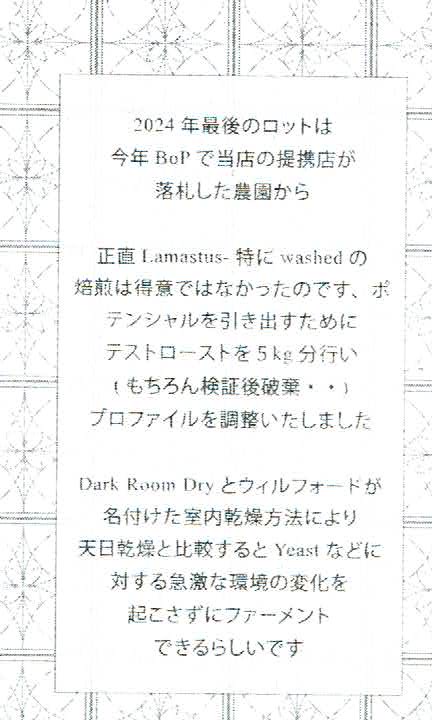 2024 年最後のロットは
今年 BoP で当店の提携店が
落札した農園から
正直 Lamastus- 特に washed の
焙煎は得意ではなかったのです、ポ
テンシャルを引き出すために
テストローストを 5 kg 分行い
( もちろん検証後破棄・・)
プロファイルを調整いたしました
Dark Room Dry とウィルフォードが
名付けた室内乾燥方法により
天日乾燥と比較すると Yeast などに
対する急激な環境の変化を
起こさずにファーメント
できるらしいです